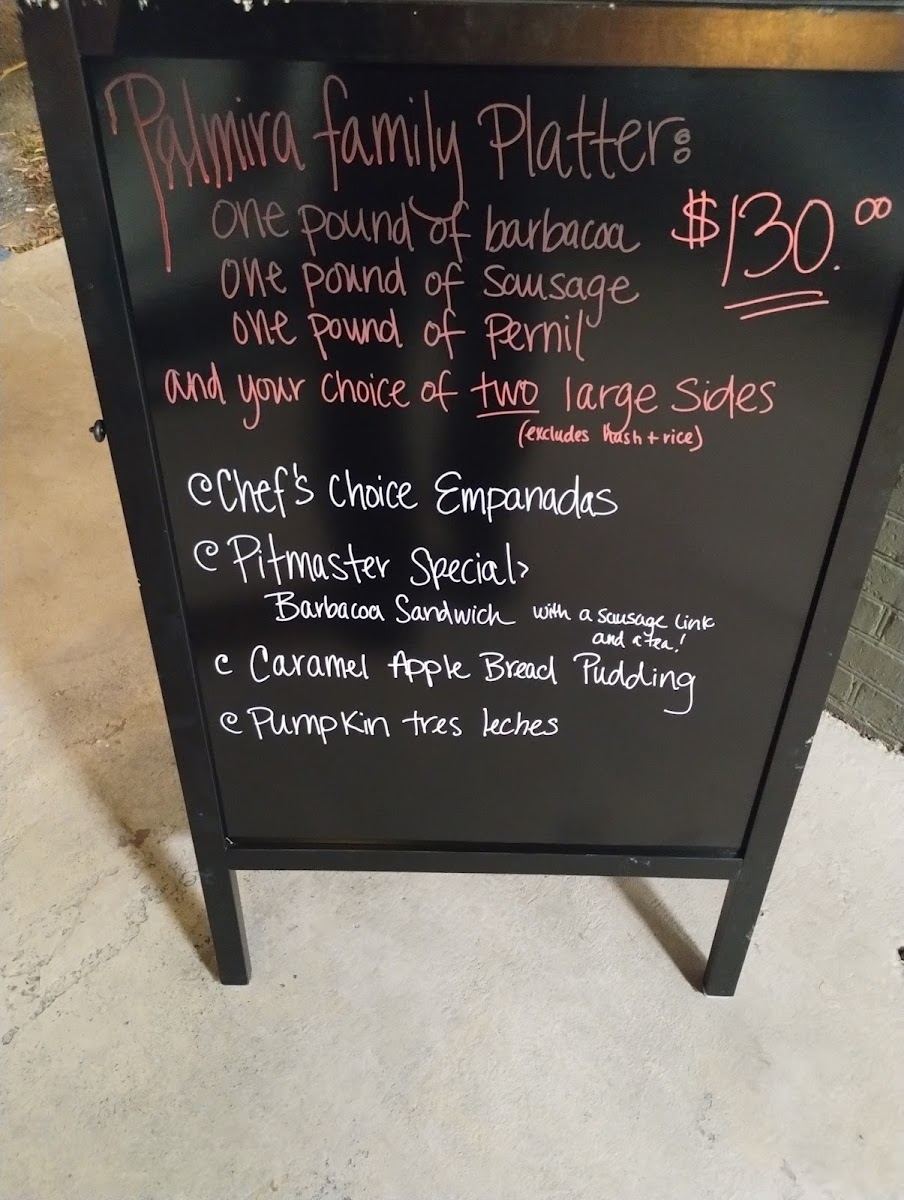 Palmira family Platter:
one pound of barbacoa
$130.00
one pound of sausage
one pound of Pernil
and your choice of two large sides
(excludes hash + rice)
Chef's Choice Empanadas
Pitmaster Special>
Barbacoa Sandwich with a sausage link
and a tea!
Caramel Apple Bread Pudding
Pumpkin tres leches